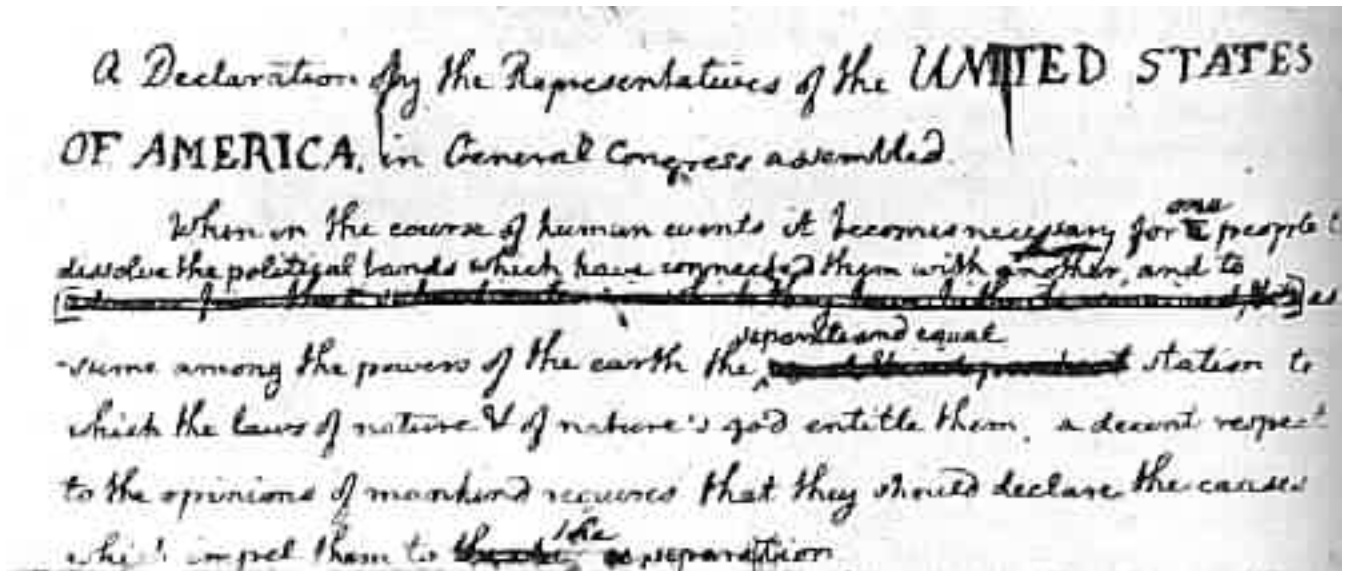 a Declaration by the Representatives of the UNITED STATES
OF AMERICA, in General Congress assembled.
When in the course of human events it becomes necessary for one people t
dissolve the political bands which have connected them with another, and to
as
separate and equal
-sume among the powers of the earth the station to
which the laws of nature & of nature's god entitle them, a decent respect
to the opinions of mankind requires that they should declare the causes
which impel them to the separation